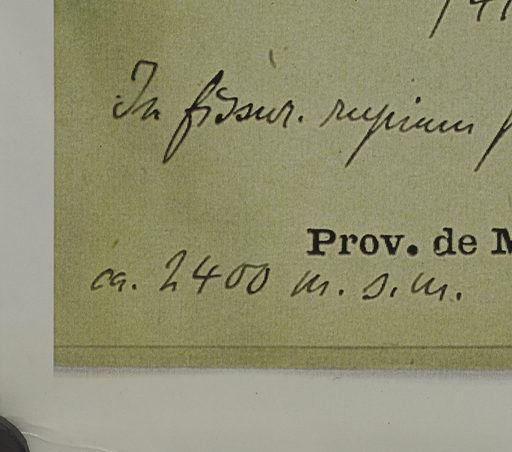 In fissur. rupium
Prov. de M
ca. 2400 m. s. m.